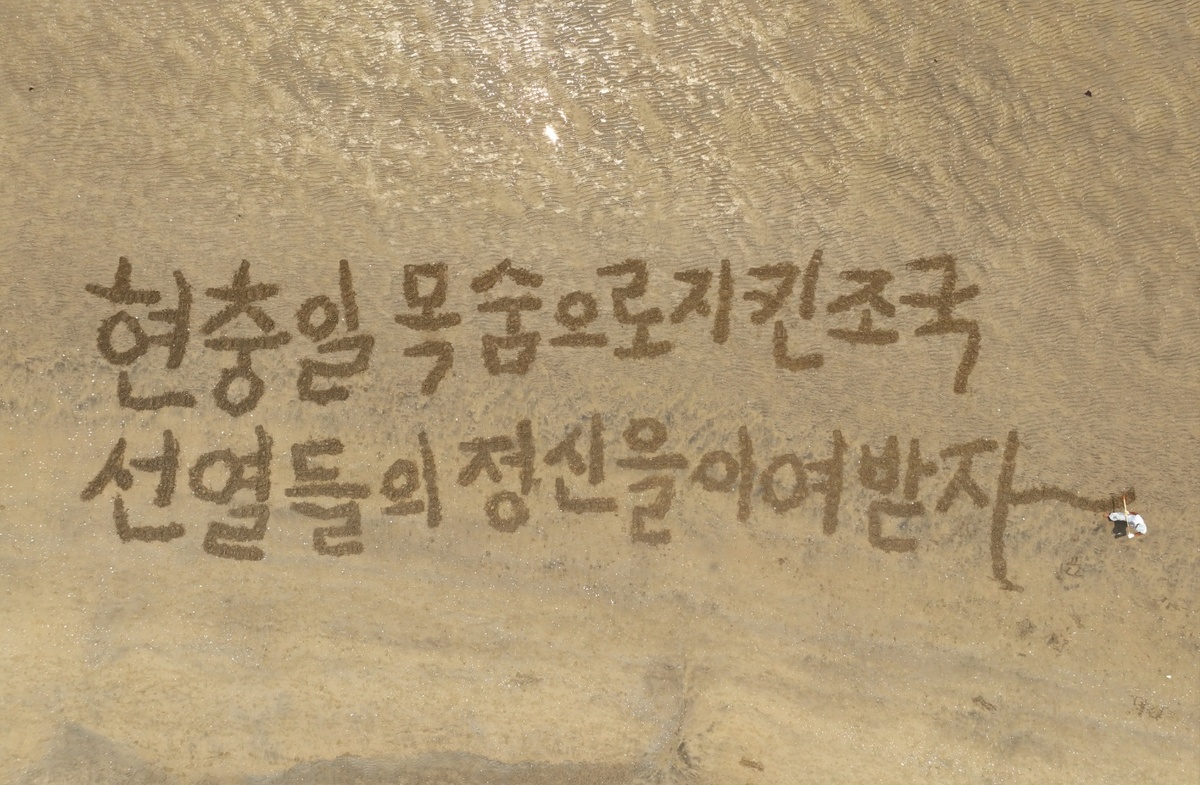 현충일 목숨으로 지킨 조국
선열들의 정신을 이여받자